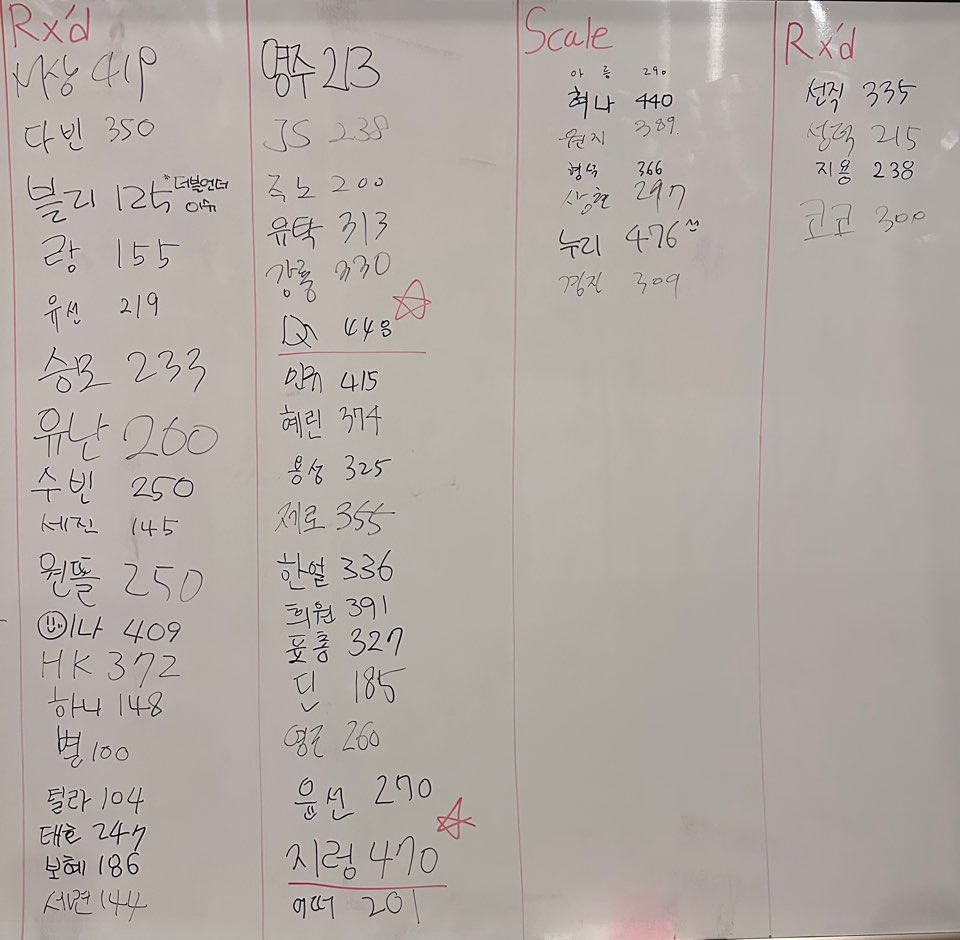 Rx'd
사장 419
다빈 350
블리 125 *더블언더
이슈
랑 155
유선 219
승모 233
유난 260
수빈 250
세진 145
원똘 250
이나 409
HK 372
하니 148
별 100
털라 104
태호 247
보혜 186
세련 144
명주 213
JS 238
주노 200
유탁 313
강룡 330
Q 448
민규 415
혜린 374
용성 325
제로 355
한얼 336
희원 391
표총 327
딘 185
영근 260
윤선 270
지렁 470
어떠 201
Scale
아름 290
혀나 440
원지 389.
형석 366
상현 297
누리 476
경진 309
Rx'd
선직 335
성덕 215
지용 238
코코 300